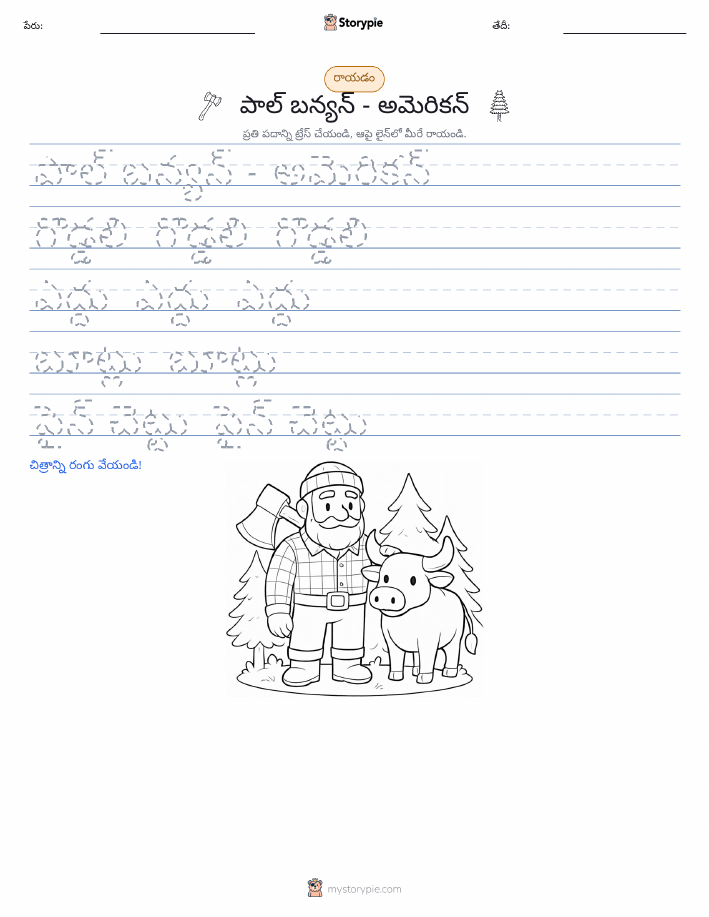 పేరు:
Storypie
తేదీ:
రాయడం
పాల్ బన్యన్ - అమెరికన్
ప్రతి పదాన్ని ట్రేస్ చేయండి, ఆపై లైన్‌లో మీరే రాయండి.
పాల్ బన్యన్ - అమెరికన్
గొడ్డలి గొడ్డలి గొడ్డలి
ఎద్దు ఎద్దు ఎద్దు
బూట్లు బూట్లు
పైన్ చెట్టు పైన్ చెట్టు
చిత్రాన్ని రంగు వేయండి!
mystorypie.com